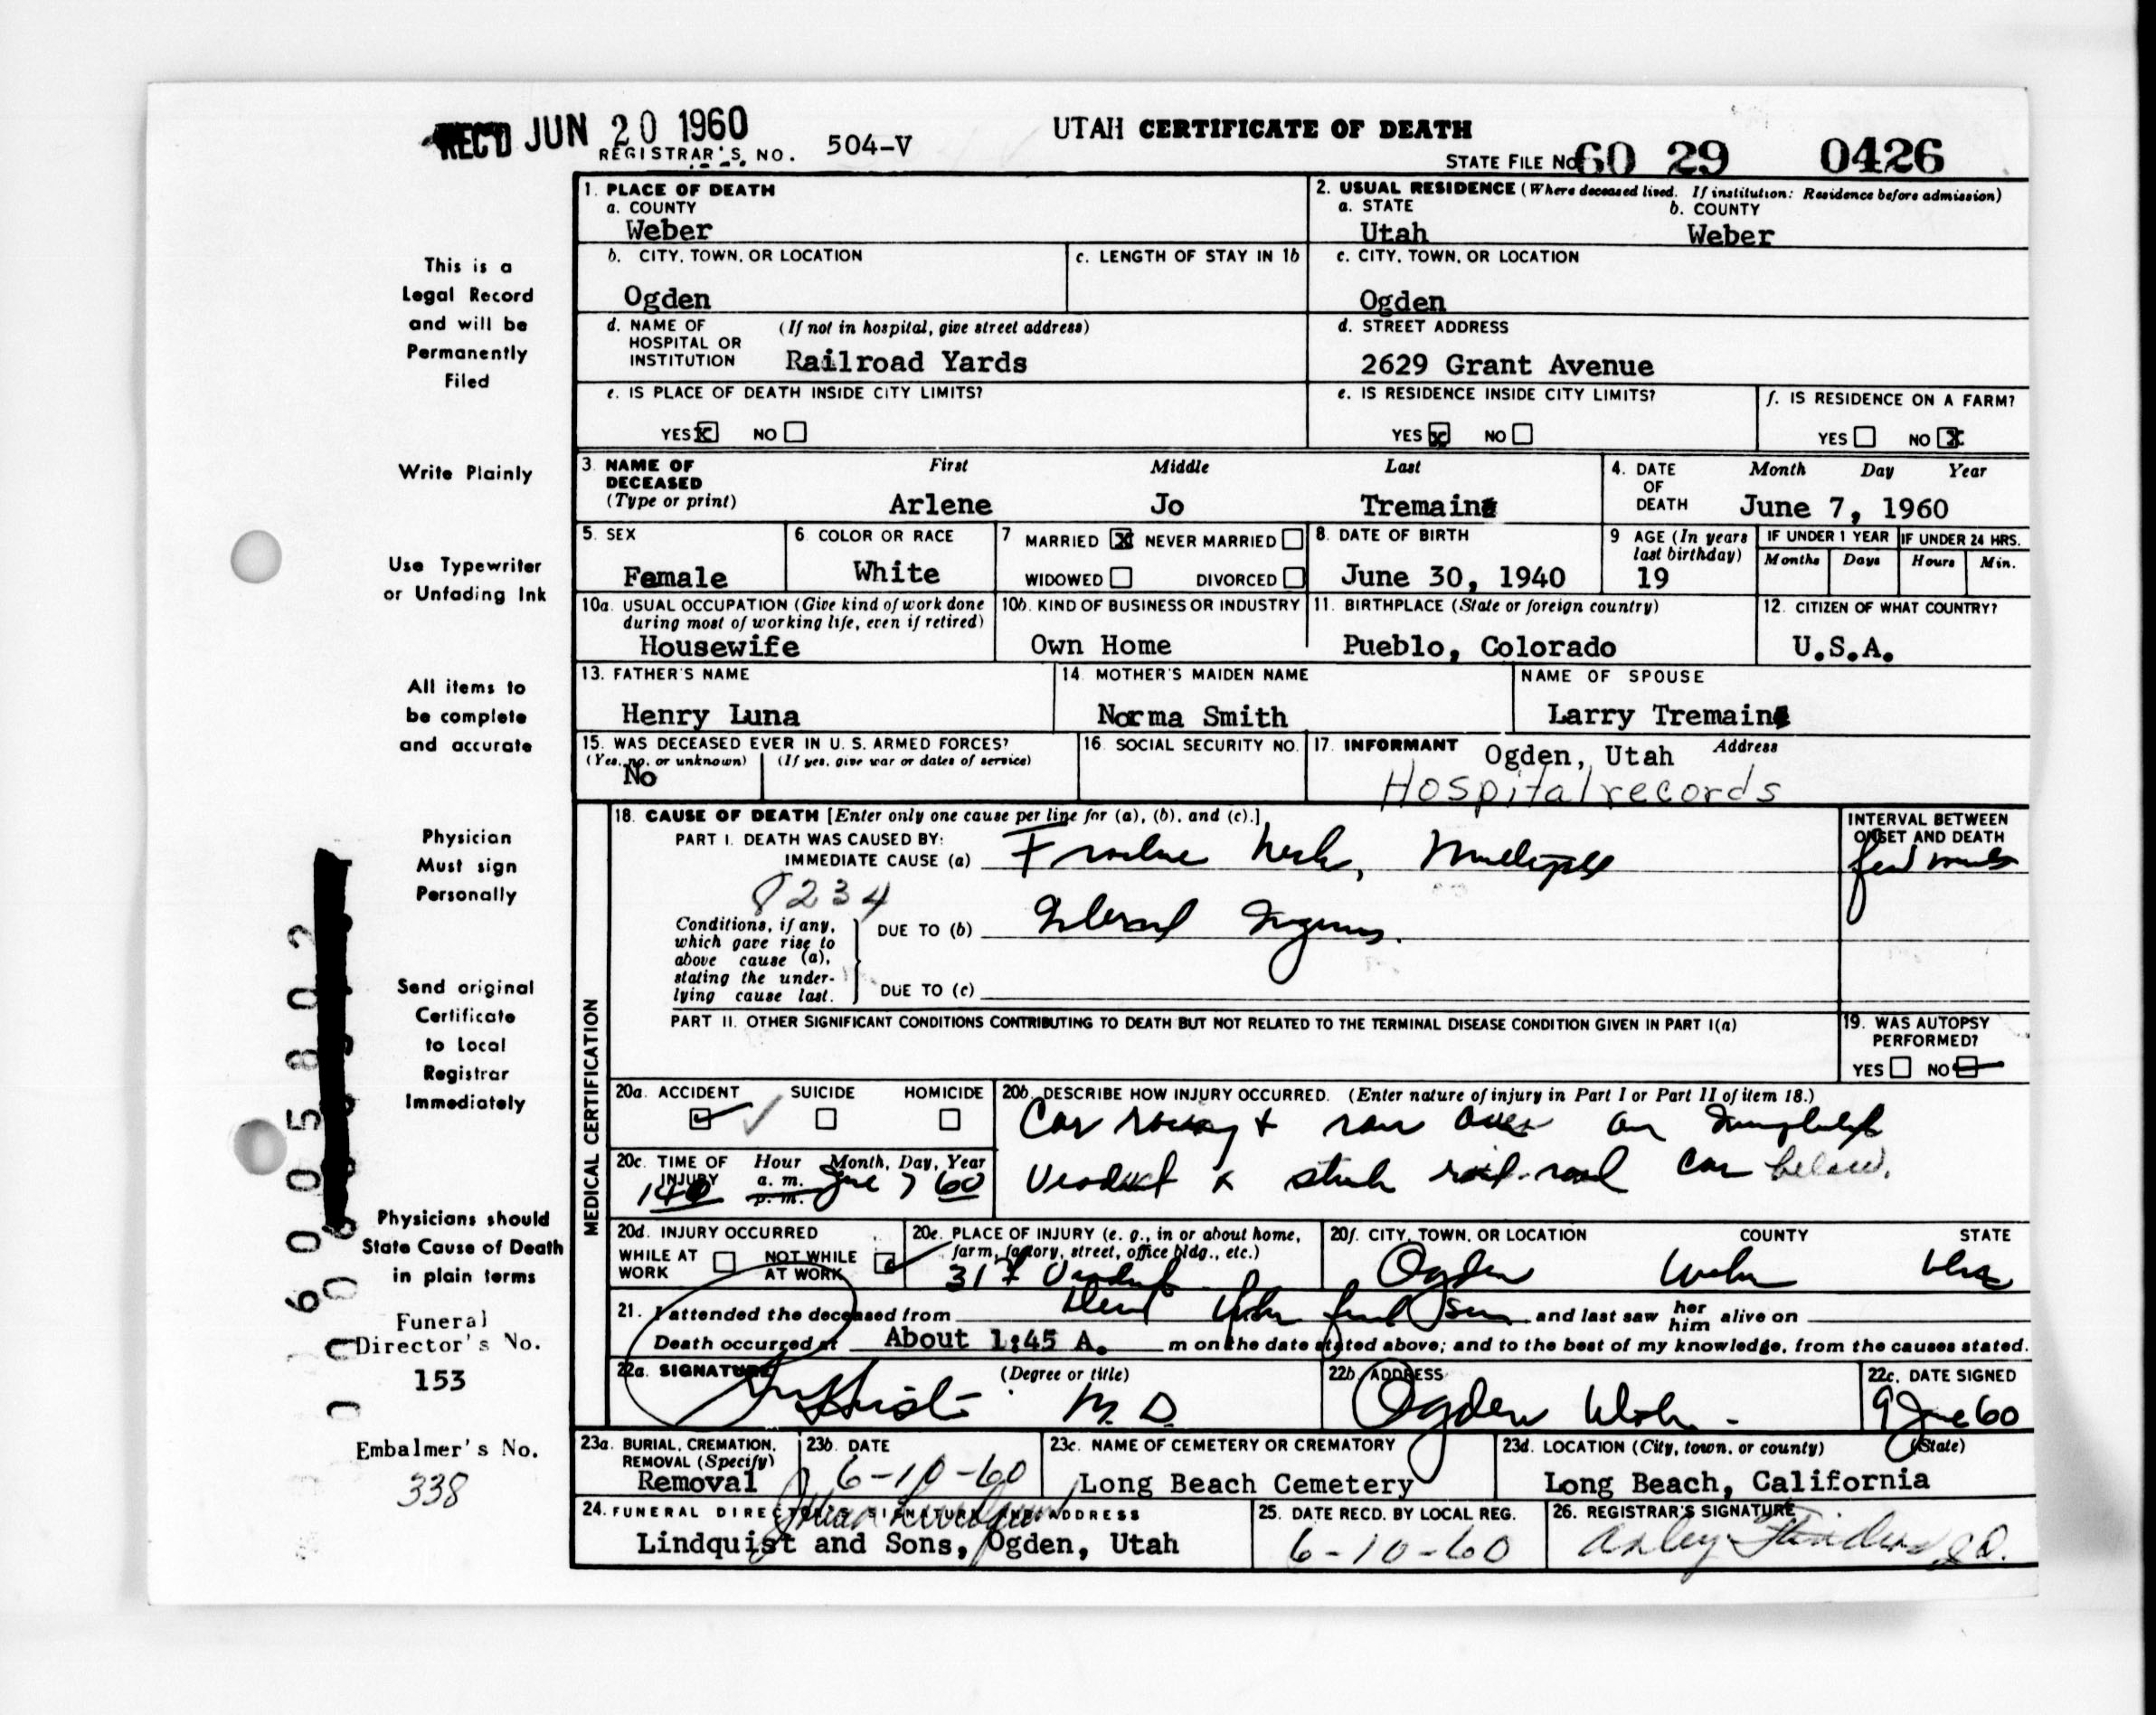 REC'D JUN 20 1960
REGISTRAR'S NO. 504-V
UTAH CERTIFICATE OF DEATH
STATE FILE NO. 60 29 0426
This is a
Legal Record
and will be
Permanently
Filed
Write Plainly
Use Typewriter
or Unfading Ink
All items to
be complete
and accurate
Physician
Must sign
Personally
Send original
Certificate
to Local
Registrar
Immediately
Physicians should
State Cause of Death
in plain terms
Funeral
Director's No.
153
Embalmer's No.
338
1. PLACE OF DEATH
a. COUNTY
Weber
2. USUAL RESIDENCE (Where deceased lived. If institution: Residence before admission)
a. STATE b. COUNTY
Utah Weber
b. CITY, TOWN, OR LOCATION
Ogden
c. LENGTH OF STAY IN 1b
c. CITY, TOWN, OR LOCATION
Ogden
d. NAME OF (If not in hospital, give street address)
HOSPITAL OR
INSTITUTION Railroad Yards
d. STREET ADDRESS
2629 Grant Avenue
e. IS PLACE OF DEATH INSIDE CITY LIMITS?
YES X NO
e. IS RESIDENCE INSIDE CITY LIMITS?
YES X NO
f. IS RESIDENCE ON A FARM?
YES NO X
3. NAME OF First Middle Last
DECEASED
(Type or print) Arlene Jo Tremain
4. DATE Month Day Year
OF
DEATH June 7, 1960
5. SEX
Female
6. COLOR OR RACE
White
7 MARRIED X NEVER MARRIED
WIDOWED DIVORCED
8. DATE OF BIRTH
June 30, 1940
9 AGE (In years
last birthday)
19
IF UNDER 1 YEAR IF UNDER 24 HRS.
Months Days Hours Min.
10a. USUAL OCCUPATION (Give kind of work done
during most of working life, even if retired)
Housewife
10b. KIND OF BUSINESS OR INDUSTRY
Own Home
11. BIRTHPLACE (State or foreign country)
Pueblo, Colorado
12. CITIZEN OF WHAT COUNTRY?
U.S.A.
13. FATHER'S NAME
Henry Luna
14. MOTHER'S MAIDEN NAME
Norma Smith
NAME OF SPOUSE
Larry Tremain
15. WAS DECEASED EVER IN U. S. ARMED FORCES?
(Yes, no, or unknown) (If yes, give war or dates of service)
No
16. SOCIAL SECURITY NO.
17. INFORMANT Ogden, Utah Address
Hospital records
MEDICAL CERTIFICATION
18. CAUSE OF DEATH [Enter only one cause per line for (a), (b), and (c).]
PART I. DEATH WAS CAUSED BY:
IMMEDIATE CAUSE (a) Fracture neck, Multiple
8234
Conditions, if any,
which gave rise to
above cause (a),
stating the under-
lying cause last.
DUE TO (b) Internal Injuries.
DUE TO (c)
INTERVAL BETWEEN
ONSET AND DEATH
few
PART II. OTHER SIGNIFICANT CONDITIONS CONTRIBUTING TO DEATH BUT NOT RELATED TO THE TERMINAL DISEASE CONDITION GIVEN IN PART I(a)
19. WAS AUTOPSY
PERFORMED?
YES NO
20a. ACCIDENT SUICIDE HOMICIDE
20b. DESCRIBE HOW INJURY OCCURRED. (Enter nature of injury in Part I or Part II of item 18.)
Car & ran over an
Viaduct & struck rail-road car below.
20c. TIME OF Hour Month, Day, Year
INJURY a. m.
p. m.
140 June 7 60
20d. INJURY OCCURRED
WHILE AT WORK NOT WHILE AT WORK
20e. PLACE OF INJURY (e. g., in or about home,
farm, factory, street, office bldg., etc.)
31st Viaduct
20f. CITY, TOWN, OR LOCATION COUNTY STATE
Ogden Weber Utah
21. I attended the deceased from Dead when first seen and last saw her him alive on
Death occurred at About 1:45 A. m on the date stated above; and to the best of my knowledge, from the causes stated.
22a. SIGNATURE (Degree or title)
M. D.
22b. ADDRESS
Ogden Utah -
22c. DATE SIGNED
9 June 60
23a. BURIAL, CREMATION,
REMOVAL (Specify)
Removal
23b. DATE
6-10-60
23c. NAME OF CEMETERY OR CREMATORY
Long Beach Cemetery
23d. LOCATION (City, town, or county) (State)
Long Beach, California
24. FUNERAL DIRECTOR'S SIGNATURE AND ADDRESS
Lindquist and Sons, Ogden, Utah
25. DATE RECD. BY LOCAL REG.
6-10-60
26. REGISTRAR'S SIGNATURE